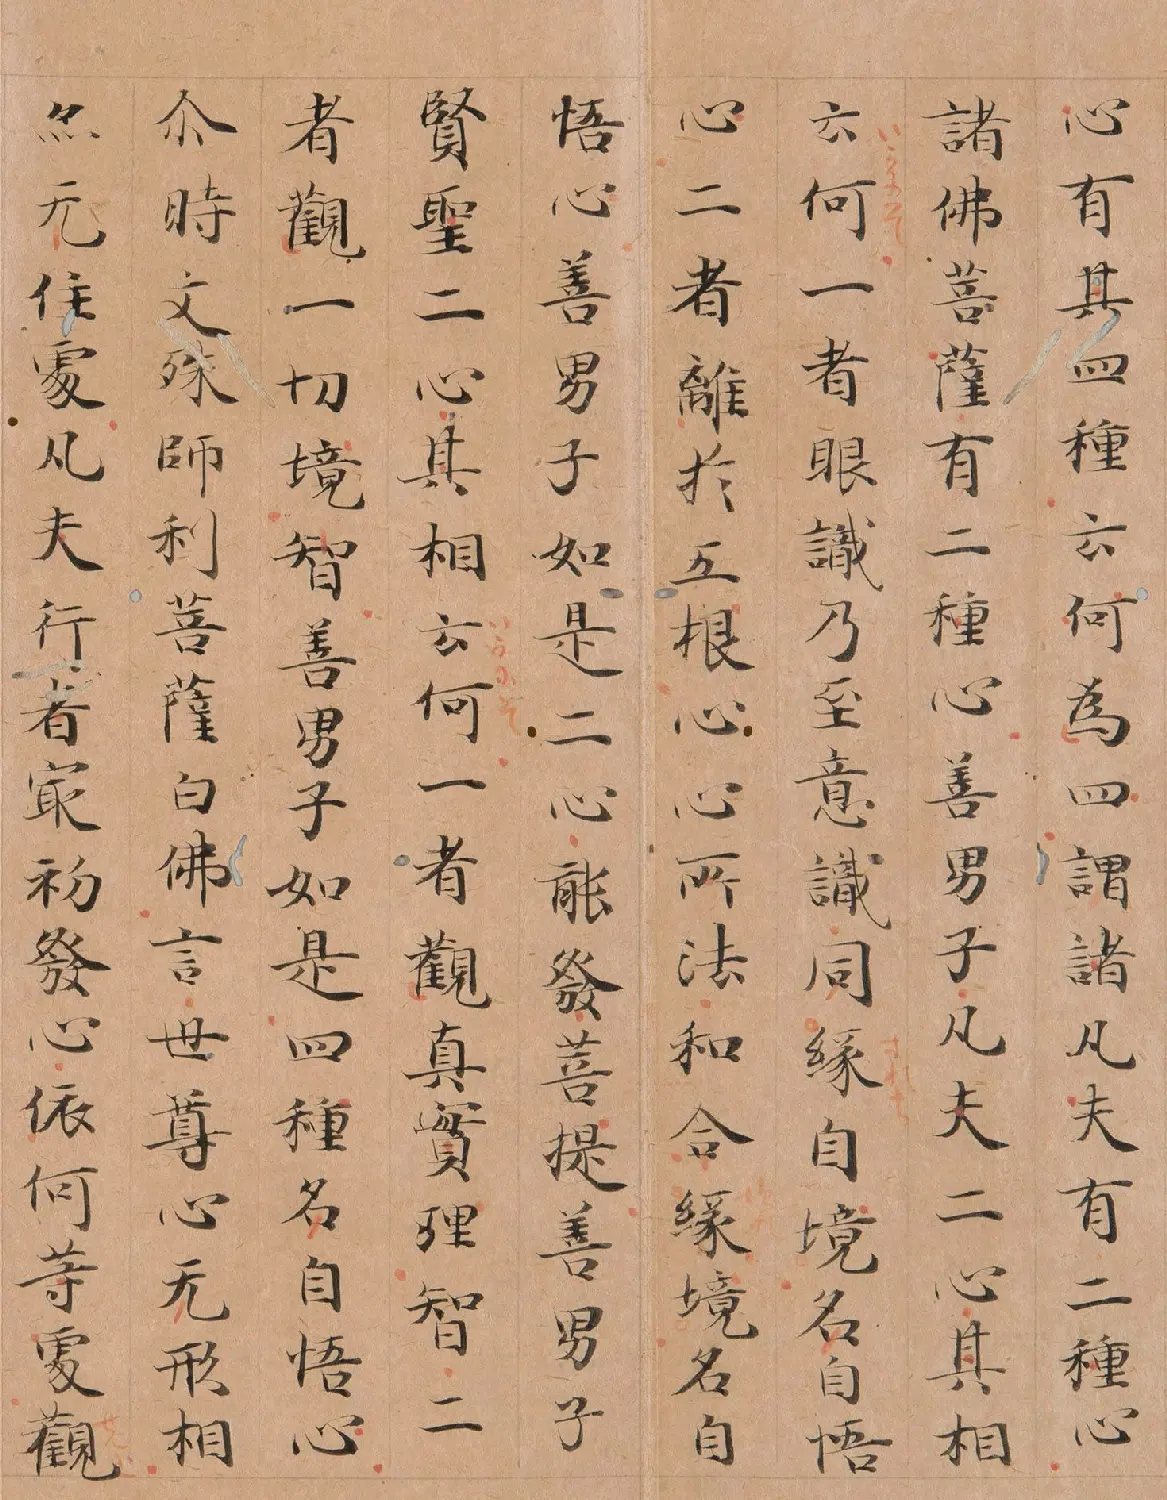 心有其四種云何為四謂諸凡夫有二種心
諸佛菩薩有二種心善男子凡夫二心其相
云何一者眼識乃至意識同緣自境名自悟
心二者離於五根心心所法和合緣境名自
悟心善男子如是二心能發菩提善男子
賢聖二心其相云何一者觀真實理智二
者觀一切境智善男子如是四種名自悟心
尒時文殊師利菩薩白佛言世尊心无形相
亦无住處凡夫行者冣初發心依何等處觀